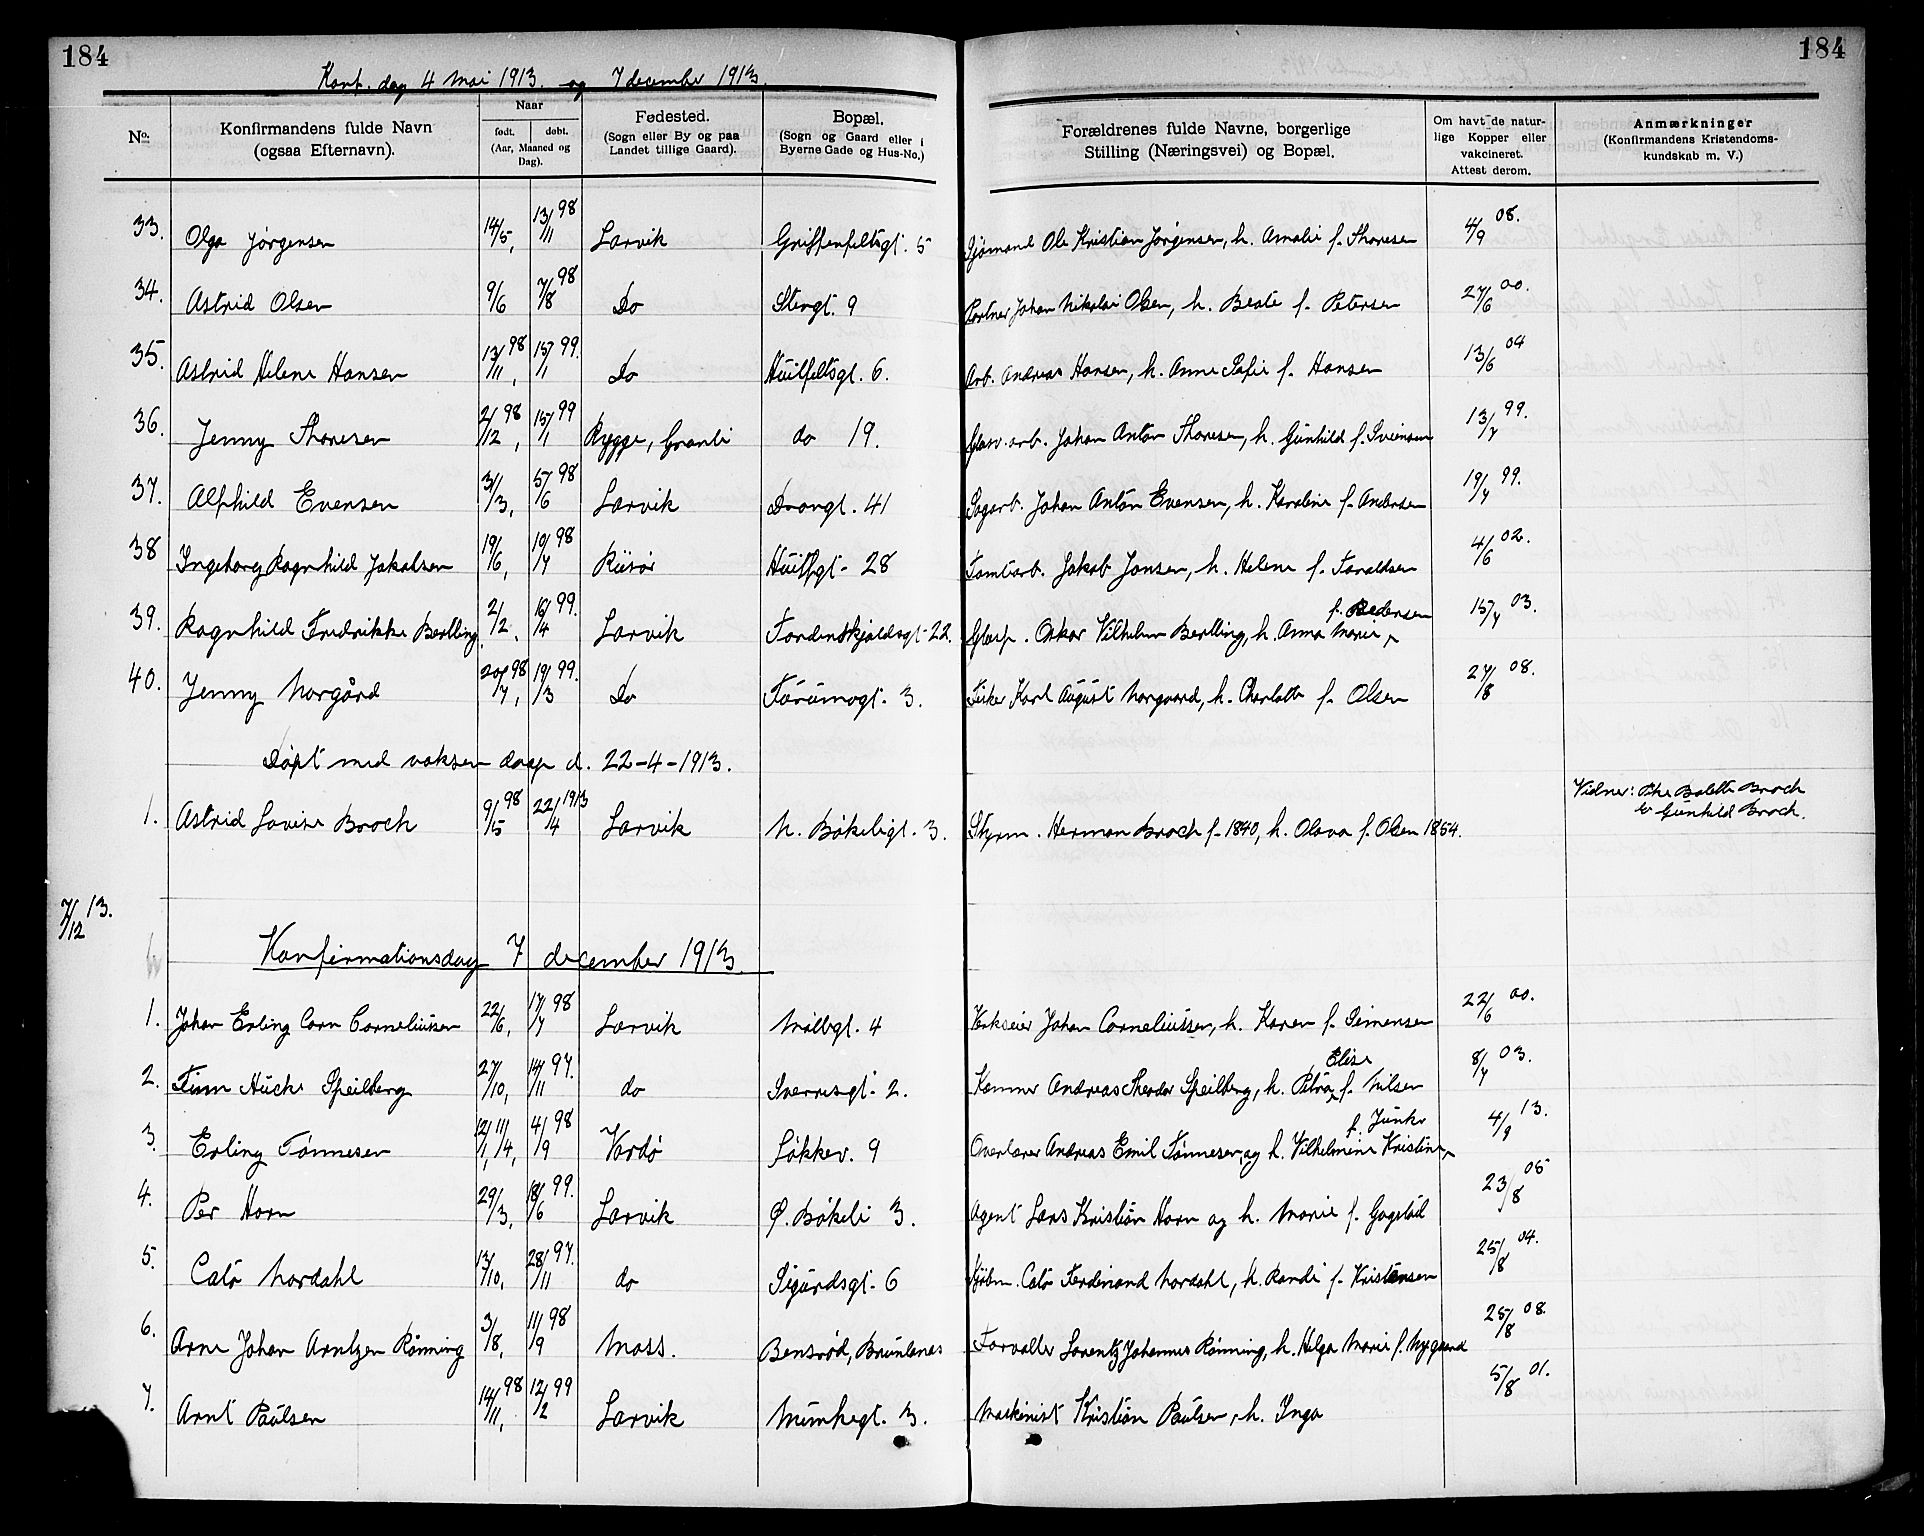 184
184
Konf. dag 4 mai 1913. og 7 december 1913.
No. Konfirmandens fulde Navn (ogsaa Efternavn). Naar født. døbt. (Aar, Maaned og Dag). Fødested. (Sogn eller By og paa Landet tillige Gaard). Bopæl. (Sogn og Gaard eller i Byerne Gade og Hus-No.) Forældrenes fulde Navne, borgerlige Stilling (Næringsvei) og Bopæl. Om havt de naturlige Kopper eller vakcineret. Attest derom. Anmærkninger (Konfirmandens Kristendomskundskab m. V.)
33. Olga Jørgensen 14/5, 13/11 98 Larvik Griffenfeltsgt. 5 Sjømand Ole Kristian Jørgensen, h. Amalie f. Thoresen 4/9 08.
34. Astrid Olsen 9/6 7/8 98 Do Stengt. 9 Portner Johan Nikolai Olsen, h. Beate f. Petersen 27/6 00.
35. Astrid Helene Hansen 13/11 98, 15/1 99. Do Huitfeltsgt. 6. Arb. Andreas Hansen, h. Anne Sofie f. Hansen 13/6 04
36. Jenny Thoresen 2/12 98, 15/1 99 Rygge, Granli do 19. Glasv.arb. Johan Anton Thoresen, h. Gunhild f. Svensen 13/7 99.
37. Alfhild Evensen 31/3, 5/6 98 Larvik Drongt. 41 Sagarb. Johan Anton Evensen, h. Karoline f. Andersen 19/7 99.
38 Ingeborg Ragnhild Jakobsen 19/6, 10/7 98 Risør Huitfgt. 28 Tomtearb. Jakob Jonsen, h. Helene f. Taraldsen 4/6 02.
39. Ragnhild Fredrikke Berlling 2/2, 16/4 99. Larvik Tordenskjoldsgt. 22. Glasp. Oskar Vilhelm Berlling, h. Anna Marie f. Pedersen 15/7 03.
40. Jenny Norgård 20/7 98, 19/3 99. Do Farumogt. 3. Fisker Karl August Norgaard, h. Charlotte f. Olsen 27/8 08.
Døpt med voksen daap d. 22-4-1913.
1. Astrid Lovise Broch 9/5 98 22/4 1913 Larvik N. Bøkeligt. 3. Styrm. Herman Broch f. 1840, h. Olava f. Olsen 1854. Vidner: Bolette Broch
Gunhild Broch.
7/12 13.
Konfirmationsdag 7 december 1913.
1. Johan Erling Corn Corneliussen 22/6, 17/7 98 Larvik Møllegt. 4 Verkseier Johan Corneliussen, h. Karen f. Simensen 22/6 00.
2. Finn Hucke Speilberg 27/10, 14/11 97. do Sverresgt. 2. Kemner Andreas Theodor Speilberg, h. Petra Elise f. Nilsen 8/7 03.
3. Erling Tønnesen 12/1, 11/4, 4/9 98 Vardø Løkkev. 9 Overlærer Andreas Emil Tønnesen og h. Vilhelmine Kristine f. Junker 4/9 13.
4. Per Horn 29/3, 18/6 99. Larvik Ø. Bøkeli 3. Agent Lars Kristian Horn og h. Marie f. Gogstad 23/8 05
5. Cato Nordahl 13/10, 28/11 97. do Sigurdsgt. 6 Sjøbm. Cato Ferdinand Nordahl, h. Randi f. Kristensen 25/8 04.
6. Arne Johan Arntzen Rønning 3/8, 11/9 98 Moss. Bensrød, Brunlanes Forvalter Lorentz Johannes Rønning, h. Helga Marie f. Nygaard 25/8 08.
7. Arnt Paulsen 14/11, 98 12/2 99 Larvik Munkegt. 3. Maskinist Kristian Paulsen, h. Inga 5/8 01.